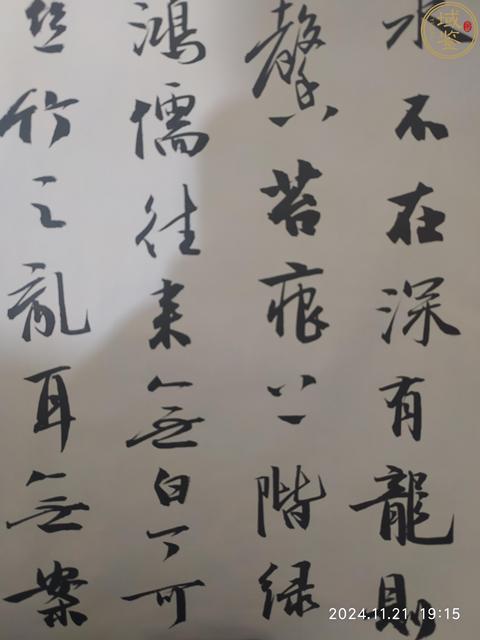 水不在深有龍則
馨苔痕上階緑
鴻儒往来無白丁可
丝竹之亂耳無案
域鉴
2024.11.21 19:15